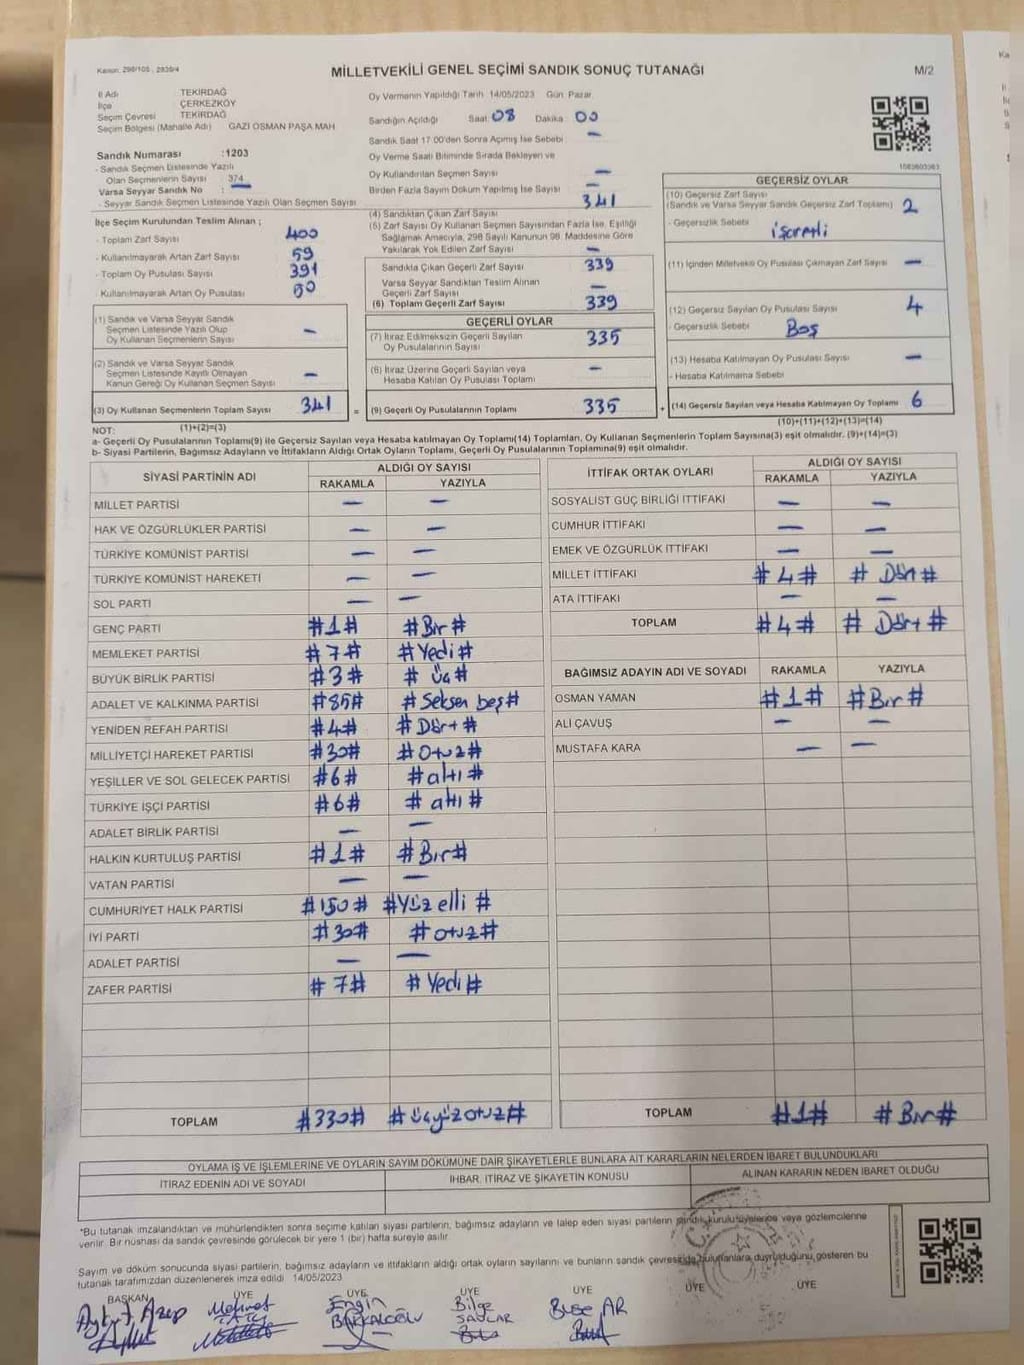 Kanun: 298/105 , 2839/4
MİLLETVEKİLİ GENEL SEÇİMİ SANDIK SONUÇ TUTANAĞI
M/2
İl Adı TEKİRDAĞ
İlçe ÇERKEZKÖY
Seçim Çevresi TEKİRDAĞ
Seçim Bölgesi (Mahalle Adı) GAZİ OSMAN PAŞA MAH
Sandık Numarası :1203
- Sandık Seçmen Listesinde Yazılı
Olan Seçmenlerin Sayısı 374
Varsa Seyyar Sandık No :
- Seyyar Sandık Seçmen Listesinde Yazılı Olan Seçmen Sayısı
İlçe Seçim Kurulundan Teslim Alınan ;
- Toplam Zarf Sayısı 400
- Kullanılmayarak Artan Zarf Sayısı 59
- Toplam Oy Pusulası Sayısı 391
- Kullanılmayarak Artan Oy Pusulası 50
(1) Sandık ve Varsa Seyyar Sandık
Seçmen Listesinde Yazılı Olup
Oy Kullanan Seçmenlerin Sayısı —
(2) Sandık ve Varsa Seyyar Sandık
Seçmen Listesinde Kayıtlı Olmayan
Kanun Gereği Oy Kullanan Seçmen Sayısı —
(3) Oy Kullanan Seçmenlerin Toplam Sayısı 341
(1)+(2)=(3)
Oy Vermenin Yapıldığı Tarih 14/05/2023 Gün Pazar
Sandığın Açıldığı Saat: 08 Dakika 00
Sandık Saat 17:00'den Sonra Açılmış İse Sebebi —
Oy Verme Saati Bitiminde Sırada Bekleyen ve
Oy Kullandırılan Seçmen Sayısı —
Birden Fazla Sayım Döküm Yapılmış İse Sayısı —
(4) Sandıktan Çıkan Zarf Sayısı 341
(5) Zarf Sayısı Oy Kullanan Seçmen Sayısından Fazla İse, Eşitliği
Sağlamak Amacıyla, 298 Sayılı Kanunun 98. Maddesine Göre
Yakılarak Yok Edilen Zarf Sayısı —
Sandıkta Çıkan Geçerli Zarf Sayısı 339
Varsa Seyyar Sandıktan Teslim Alınan
Geçerli Zarf Sayısı —
(6) Toplam Geçerli Zarf Sayısı 339
GEÇERLİ OYLAR
(7) İtiraz Edilmeksizin Geçerli Sayılan
Oy Pusulalarının Sayısı 335
(8) İtiraz Üzerine Geçerli Sayılan veya
Hesaba Katılan Oy Pusulası Toplamı —
= (9) Geçerli Oy Pusulalarının Toplamı 335
1583603363
GEÇERSİZ OYLAR
(10) Geçersiz Zarf Sayısı
(Sandık ve Varsa Seyyar Sandık Geçersiz Zarf Toplamı) 2
- Geçersizlik Sebebi işaretli
(11) İçinden Milletvekili Oy Pusulası Çıkmayan Zarf Sayısı —
(12) Geçersiz Sayılan Oy Pusulası Sayısı 4
- Geçersizlik Sebebi Boş
(13) Hesaba Katılmayan Oy Pusulası Sayısı —
- Hesaba Katılmama Sebebi
+ (14) Geçersiz Sayılan veya Hesaba Katılmayan Oy Toplamı 6
(10)+(11)+(12)+(13)=(14)
NOT:
a- Geçerli Oy Pusulalarının Toplamı(9) ile Geçersiz Sayılan veya Hesaba katılmayan Oy Toplamı(14) Toplamları, Oy Kullanan Seçmenlerin Toplam Sayısına(3) eşit olmalıdır. (9)+(14)=(3)
b- Siyasi Partilerin, Bağımsız Adayların ve İttifakların Aldığı Ortak Oyların Toplamı, Geçerli Oy Pusulalarının Toplamına(9) eşit olmalıdır.
SİYASİ PARTİNİN ADI ALDIĞI OY SAYISI
RAKAMLA YAZIYLA
MİLLET PARTİSİ — —
HAK VE ÖZGÜRLÜKLER PARTİSİ — —
TÜRKİYE KOMÜNİST PARTİSİ — —
TÜRKİYE KOMÜNİST HAREKETİ — —
SOL PARTİ — —
GENÇ PARTİ #1# #Bir#
MEMLEKET PARTİSİ #7# #Yedi#
BÜYÜK BİRLİK PARTİSİ #3# #üç#
ADALET VE KALKINMA PARTİSİ #85# #Seksen beş#
YENİDEN REFAH PARTİSİ #4# #Dört#
MİLLİYETÇİ HAREKET PARTİSİ #30# #otuz#
YEŞİLLER VE SOL GELECEK PARTİSİ #6# #altı#
TÜRKİYE İŞÇİ PARTİSİ #6# #altı#
ADALET BİRLİK PARTİSİ — —
HALKIN KURTULUŞ PARTİSİ #1# #Bir#
VATAN PARTİSİ — —
CUMHURİYET HALK PARTİSİ #150# #Yüz elli#
İYİ PARTİ #30# #otuz#
ADALET PARTİSİ — —
ZAFER PARTİSİ #7# #Yedi#
TOPLAM #330# #üçyüzotuz#
İTTİFAK ORTAK OYLARI ALDIĞI OY SAYISI
RAKAMLA YAZIYLA
SOSYALİST GÜÇ BİRLİĞİ İTTİFAKI — —
CUMHUR İTTİFAKI — —
EMEK VE ÖZGÜRLÜK İTTİFAKI — —
MİLLET İTTİFAKI #4# #Dört#
ATA İTTİFAKI — —
TOPLAM #4# #Dört#
BAĞIMSIZ ADAYIN ADI VE SOYADI RAKAMLA YAZIYLA
OSMAN YAMAN #1# #Bir#
ALİ ÇAVUŞ — —
MUSTAFA KARA — —
TOPLAM #1# #Bir#
OYLAMA İŞ VE İŞLEMLERİNE VE OYLARIN SAYIM DÖKÜMÜNE DAİR ŞİKAYETLERLE BUNLARA AİT KARARLARIN NELERDEN İBARET BULUNDUKLARI
İTİRAZ EDENİN ADI VE SOYADI İHBAR, İTİRAZ VE ŞİKAYETİN KONUSU ALINAN KARARIN NEDEN İBARET OLDUĞU
*Bu tutanak imzalandıktan ve mühürlendikten sonra seçime katılan siyasi partilerin, bağımsız adayların ve talep eden siyasi partilerin sandık kurulu üyelerine veya gözlemcilerine
verilir. Bir nüshası da sandık çevresinde görülecek bir yere 1 (bir) hafta süreyle asılır.
Sayım ve döküm sonucunda siyasi partilerin, bağımsız adayların ve ittifakların aldığı ortak oyların sayılarını ve bunların sandık çevresinde bulunanlara duyrulduğunu gösteren bu
tutanak tarafımızdan düzenlenerek imza edildi 14/05/2023
BAŞKAN ÜYE ÜYE ÜYE ÜYE ÜYE ÜYE
Mehmet Engin Bilge Buse AR